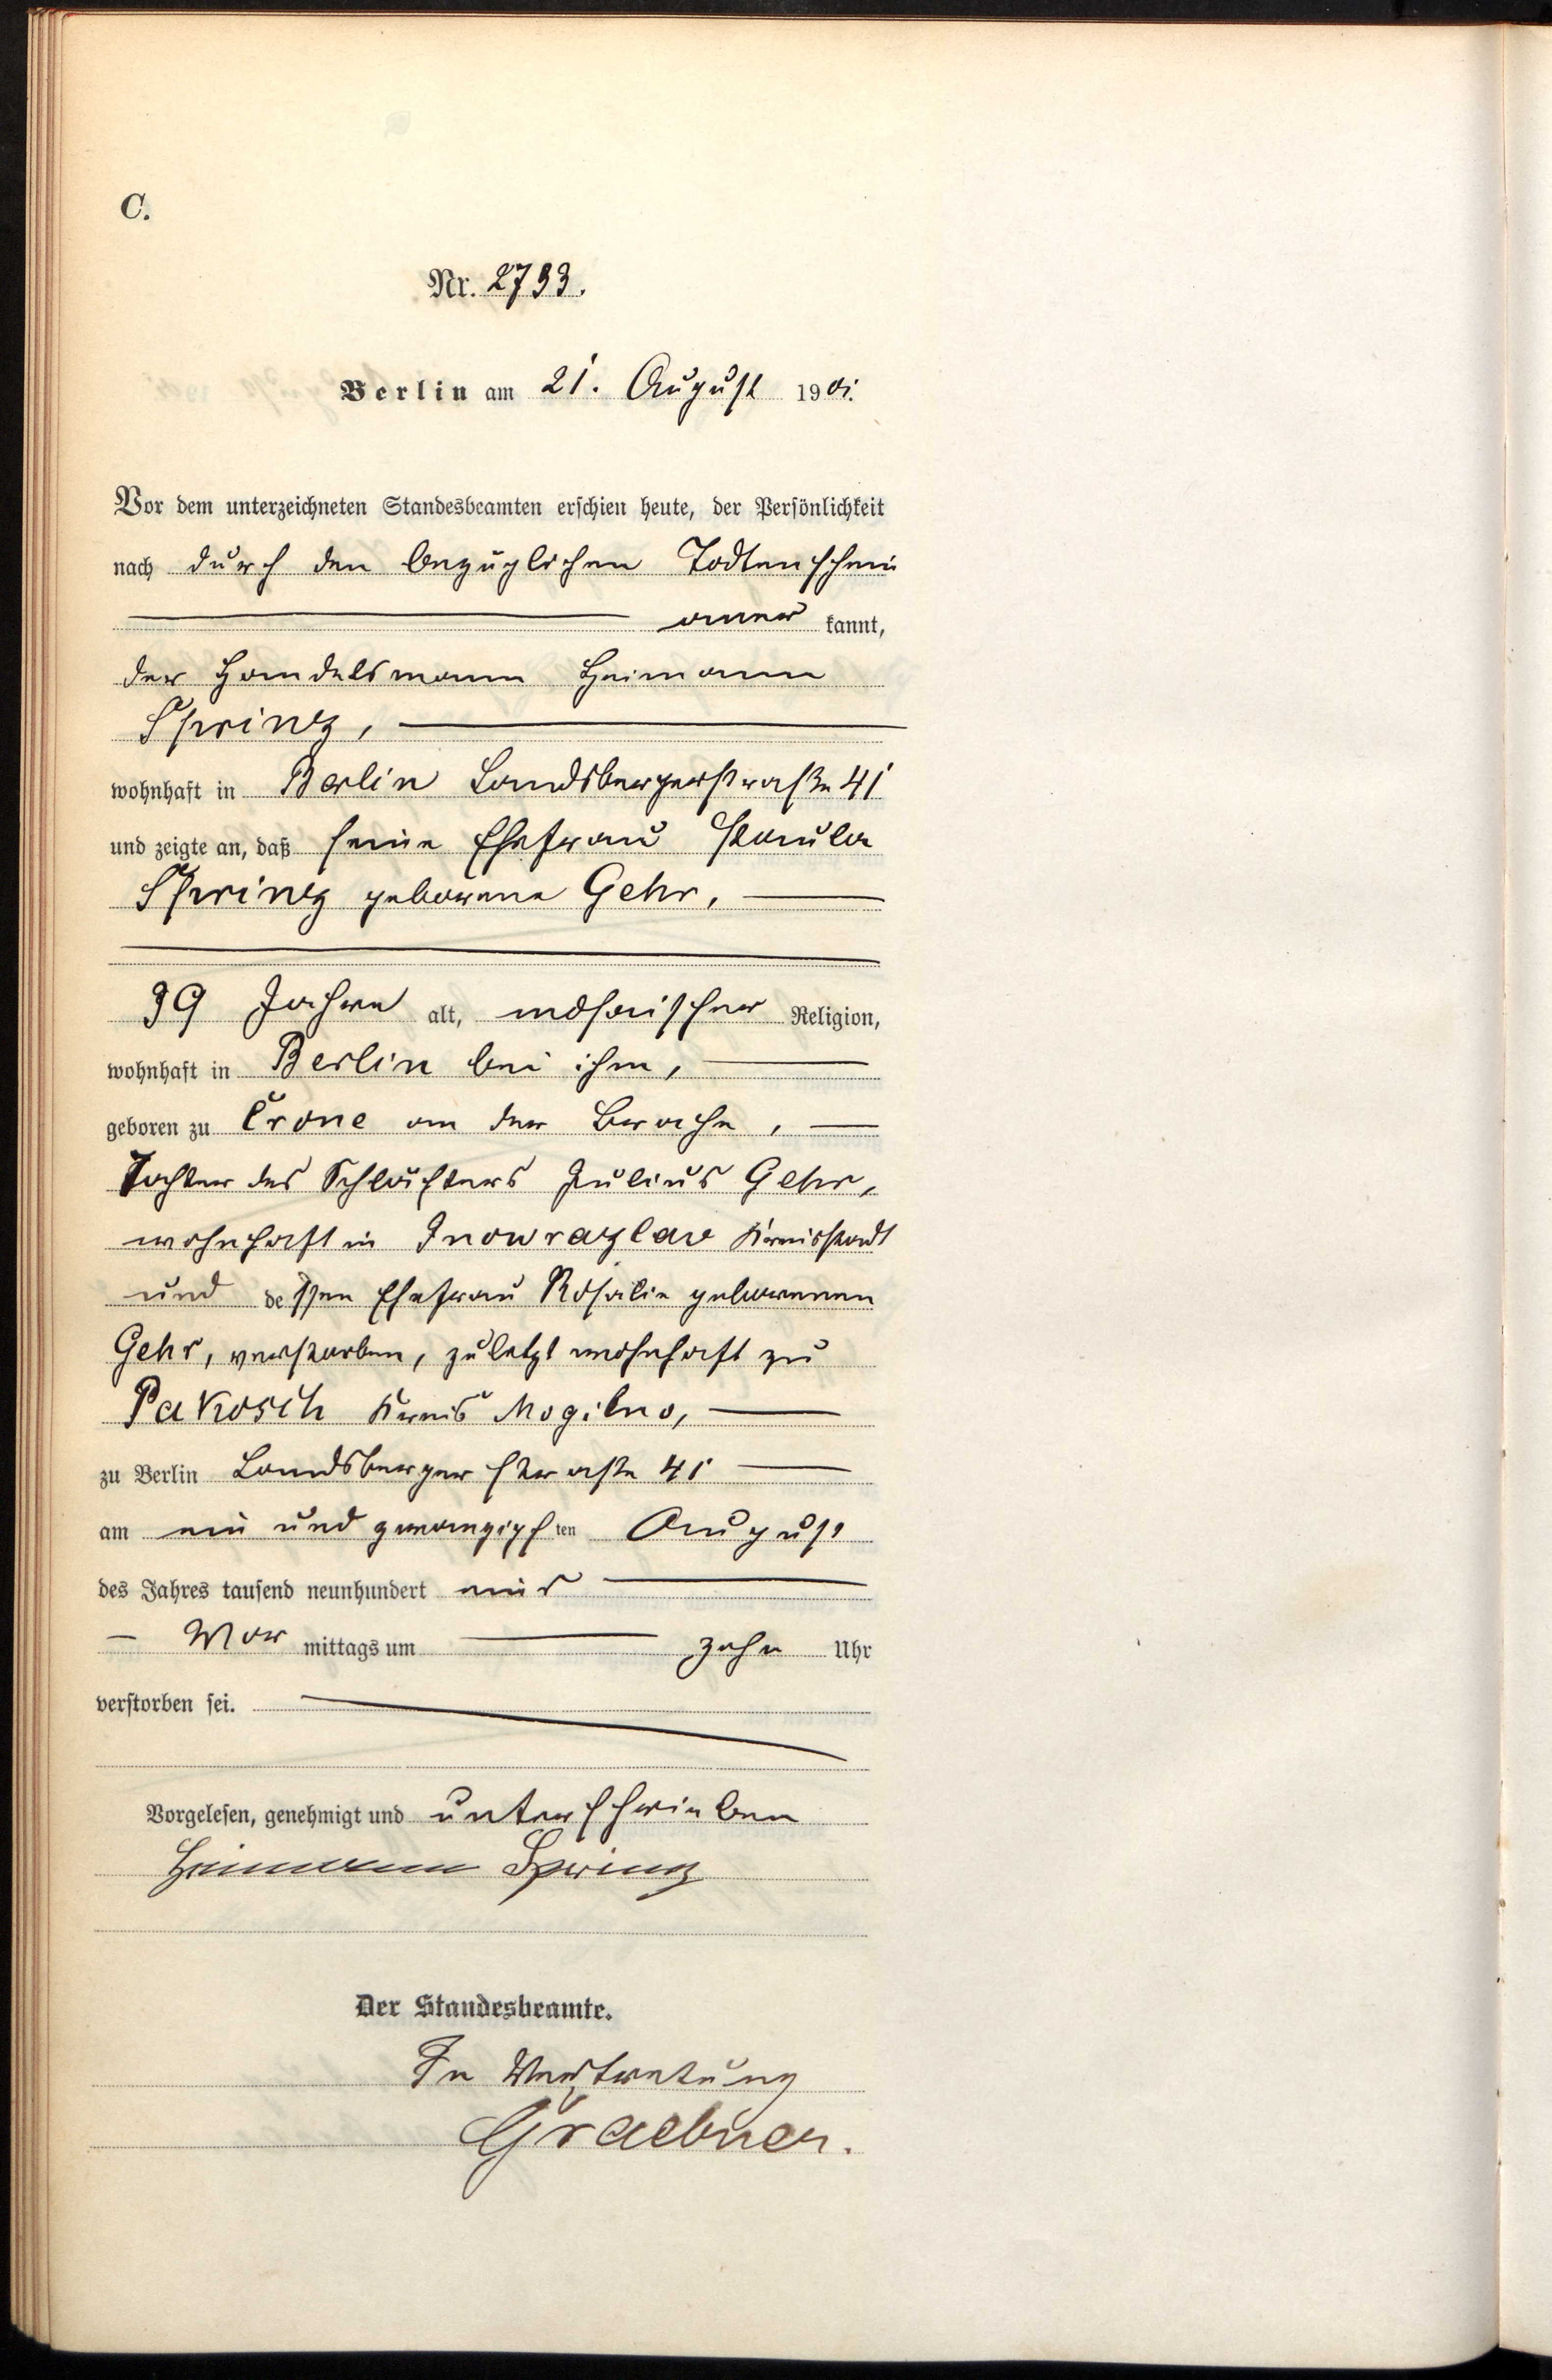 C.
Nr. 2733.
Berlin am 21. August 1901.
Vor dem unterzeichneten Standesbeamten erschien heute, der Persönlichkeit
nach durch den bezüglichen Todtenschein
anerkannt,
der Handelsmann Heimann
Sprinz,
wohnhaft in Berlin Landsbergerstraße 41
und zeigte an, daß seine Ehefrau Paula
Sprinz geborene Gehr,
39 Jahre alt, mosaischer Religion,
wohnhaft in Berlin bei ihm,
geboren zu Crone an der Brahe,
Tochter des Schlächters Julius Gehr,
wohnhaft in Inowrazlaw Kreisstadt
und dessen Ehefrau Rosalie geborenen
Gehr, verstorben, zuletzt wohnhaft zu
Pakosch Kreis Mogilno,
zu Berlin Landsberger straße 41
am ein und zwanzigsten August
des Jahres tausend neunhundert eins
Vormittags um zehn Uhr
verstorben sei.
Vorgelesen, genehmigt und unterschrieben
Heimann Sprinz
Der Standesbeamte.
In Vertretung
Graebner.